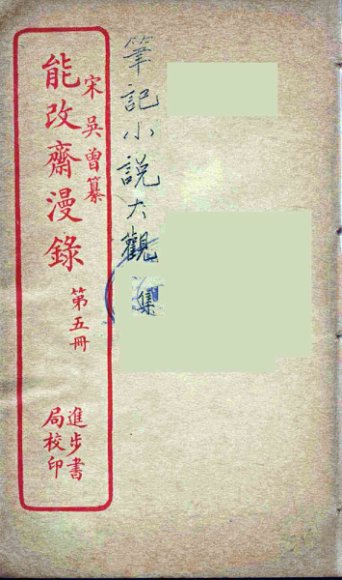 筆記小説大觀
集
宋吳曾纂
能改齋漫錄
第五冊
進步書
局校印